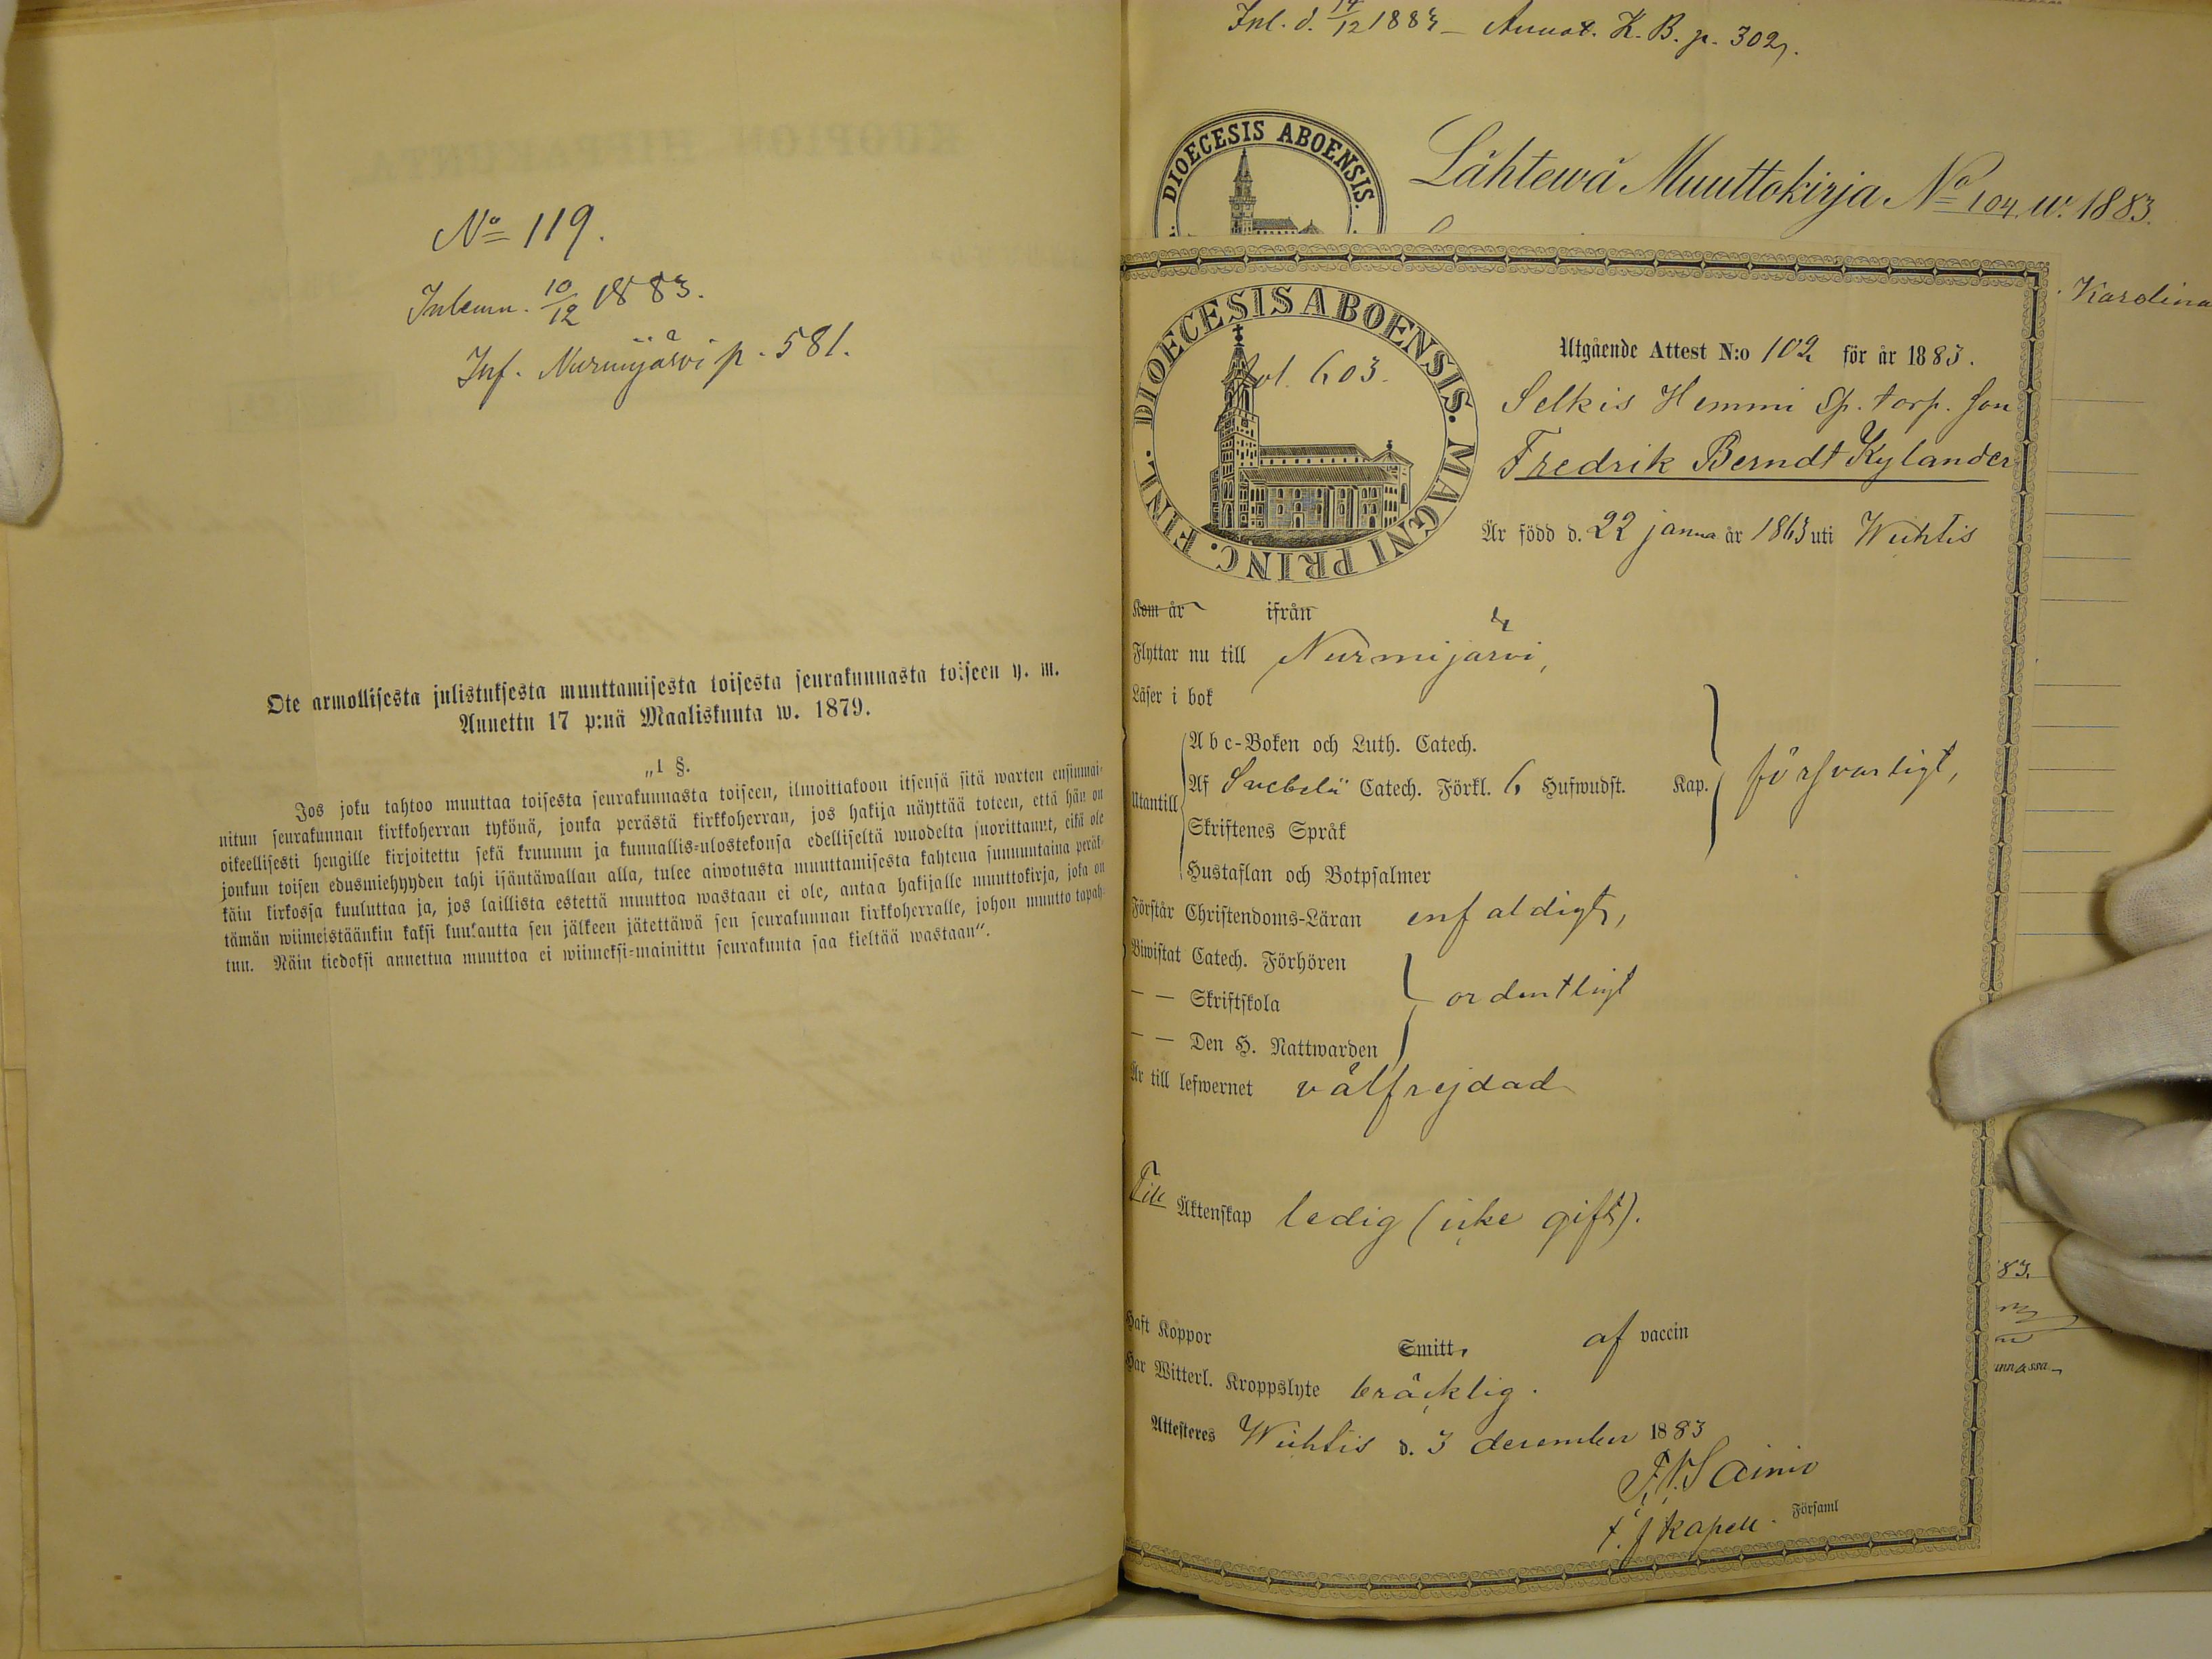 No 119.
Inlemn. 10/12 1883.
Inf. Nurmijärvi p. 581.
Ote armollisesta julistuksesta muuttamisesta toisesta seurakunnasta toiseen y. m.
Annettu 17 p:nä Maaliskuuta w. 1879.
„1 §.
Jos joku tahtoo muuttaa toisesta seurakunnasta toiseen, ilmoittakoon itsensä sitä warten ensinmai-
nitun seurakunnan kirkkoherran tykönä, jonka perästä kirkkoherran, jos hakija näyttää toteen, että hän on
oikeellisesti hengille kirjoitettu sekä kruunun ja kunnallis-ulostekonsa edelliseltä wuodelta suorittanut, eikä ole
jonkun toisen edusmiehyyden tahi isäntäwallan alla, tulee aiwotusta muuttamisesta kahtena sunnuntaina peräk-
käin kirkossa kuuluttaa ja, jos laillista estettä muuttoa wastaan ei ole, antaa hakijalle muuttokirja, joka on
tämän wiimeistäänkin kaksi kuukautta sen jälkeen jätettäwä sen seurakunnan kirkkoherralle, johon muutto tapah-
tuu. Näin tiedoksi annettua muuttoa ei wiimeksi-mainittu seurakunta saa kieltää wastaan".
Inl. d. 14/12 1883 – Annot. K. B. p. 302.
DIOECESIS ABOENSIS.
Lähtewä Muuttokirja No 104 w. 1883.
Karolina
DIOECESIS ABOENSIS. MAGNI PRINC. FINL.
fol. 603.
Utgående Attest N:o 102 för år 1883.
Selkis Hemmi Sp. torp. son
Fredrik Berndt Kylander
Är född d. 22 janua år 1863 uti Wichtis
Kom år ifrån
Flyttar nu till Nurmijärvi,
Läser i bok
Abc-Boken och Luth. Catech.
Utantill Af Svebelii Catech. Förkl. 6 Hufwudst. Kap. försvarligt,
Skriftenes Språk
Hustaflan och Botpsalmer
Förstår Christendoms-Läran enfaldigt,
Biwistat Catech. Förhören
— — Skriftskola ordentligt
— — Den H. Nattwarden
Är till lefwernet välfrejdad
Till Äktenskap ledig (icke gift).
Haft Koppor Smitt. af vaccin
Har Witterl. Kroppslyte bräcklig.
Attesteres Wichtis d. 3 december 1883
83.
Sainio
t. f. kapell. Församl